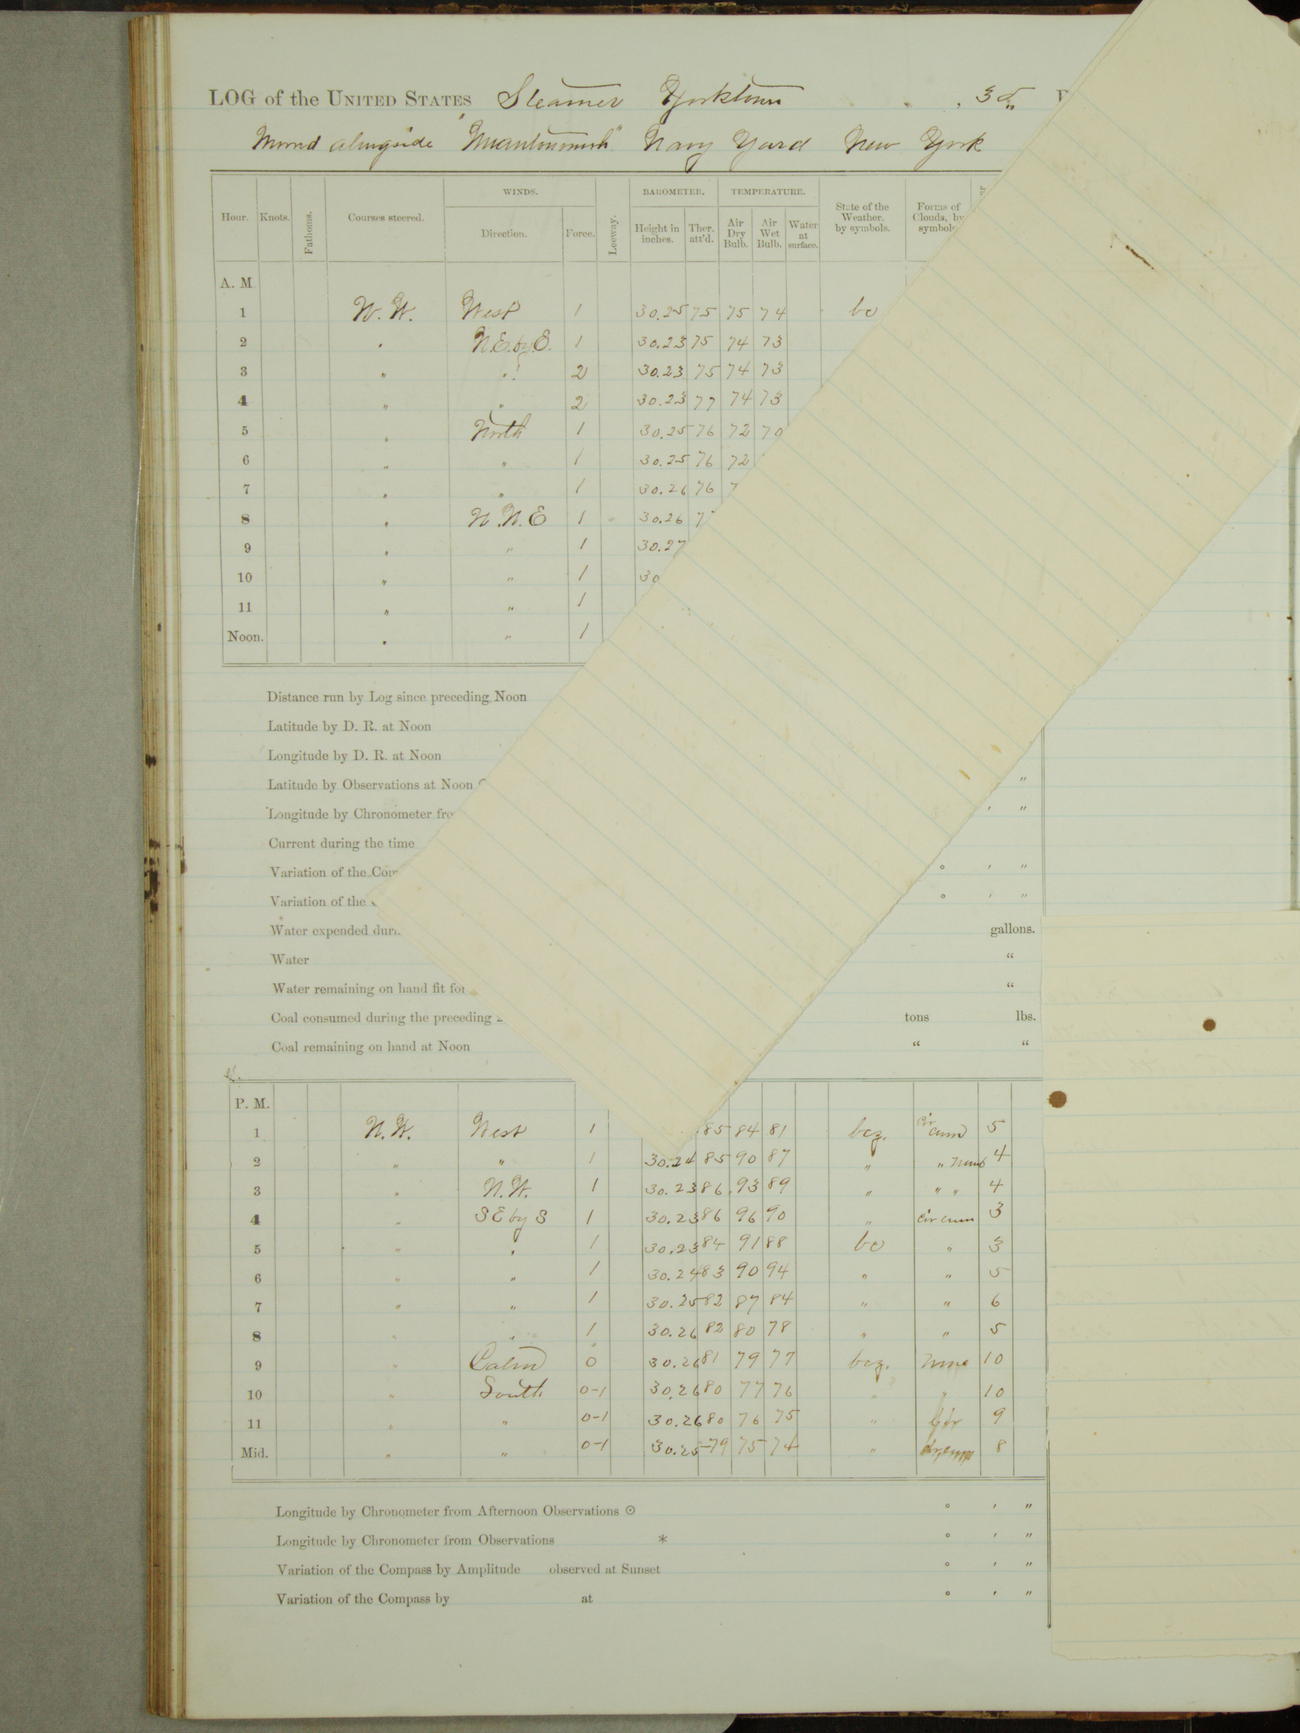 LOG of the UNITED STATES Steamer Yorktown , 3d
Moored alongside "Miantonomoh" Navy Yard New York
WINDS. BAROMETER. TEMPERATURE.
Hour. Knots. Fathoms. Courses steered. Direction. Force. Leeway. Height in inches. Ther. att'd. Air Dry Bulb. Air Wet Bulb. Water at surface. State of the Weather, by symbols. Forms of Clouds, by symbols
A. M.
1 N. W. West 1 30.25 75 75 74 bc
2 " N.E. by E. 1 30.23 75 74 73
3 " " 2 30.23 75 74 73
4 " " 2 30.23 77 74 73
5 " North 1 30.25 76 72 70
6 " " 1 30.25 76 72
7 " " 1 30.26 76 7
8 " N.N.E 1 30.26 7
9 " " 1 30.27
10 " " 1 30
11 " " 1
Noon. " " 1
Distance run by Log since preceding Noon
Latitude by D. R. at Noon
Longitude by D. R. at Noon
Latitude by Observations at Noon "
Longitude by Chronometer ' "
Current during the time
Variation of the ° ' "
Variation of the ° ' "
Water expended gallons.
Water "
Water remaining on hand fit for "
Coal consumed during the preceding tons lbs.
Coal remaining on hand at Noon " "
P. M.
1 N.W. West 1 85 84 81 bcz. cir cum 5
2 " " 1 30.24 85 90 87 " " Nimb 4
3 " N.W. 1 30.23 86 93 89 " " " 4
4 " SE by S 1 30.23 86 96 90 " cir cum 3
5 " " 1 30.23 84 91 88 bc " 3
6 " " 1 30.24 83 90 94 " " 5
7 " " 1 30.25 82 87 84 " " 6
8 " " 1 30.26 82 80 78 " " 5
9 " Calm 0 30.26 81 79 77 bcz. None 10
10 " South 0-1 30.26 80 77 76 " " 10
11 " " 0-1 30.26 80 76 75 " Cir 9
Mid. " " 0-1 30.25 79 75 74 " cir, cum 8
Longitude by Chronometer from Afternoon Observations ☉ ° ' "
Longitude by Chronometer from Observations * ° ' "
Variation of the Compass by Amplitude observed at Sunset ° ' "
Variation of the Compass by at ° ' "